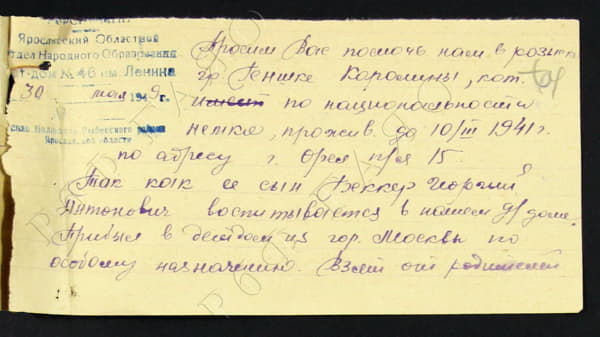 Ярославский Областной
отдел Народного Образования
дет. дом № 46 им. Ленина
30 мая 1949 г.
Ярославской области
Просим Вас помочь нам в розыске
гр. Геншке Каролины, кот.
по национальности
немка, прожив. до 10/III 1941 г.
по адресу г. Орел п/я 15.
Так как ее сын Беккер Георгий
Антонович воспитывается в нашем д/доме.
Прибыл в детдом из гор. Москвы по
особому назначению. Взят от родителей